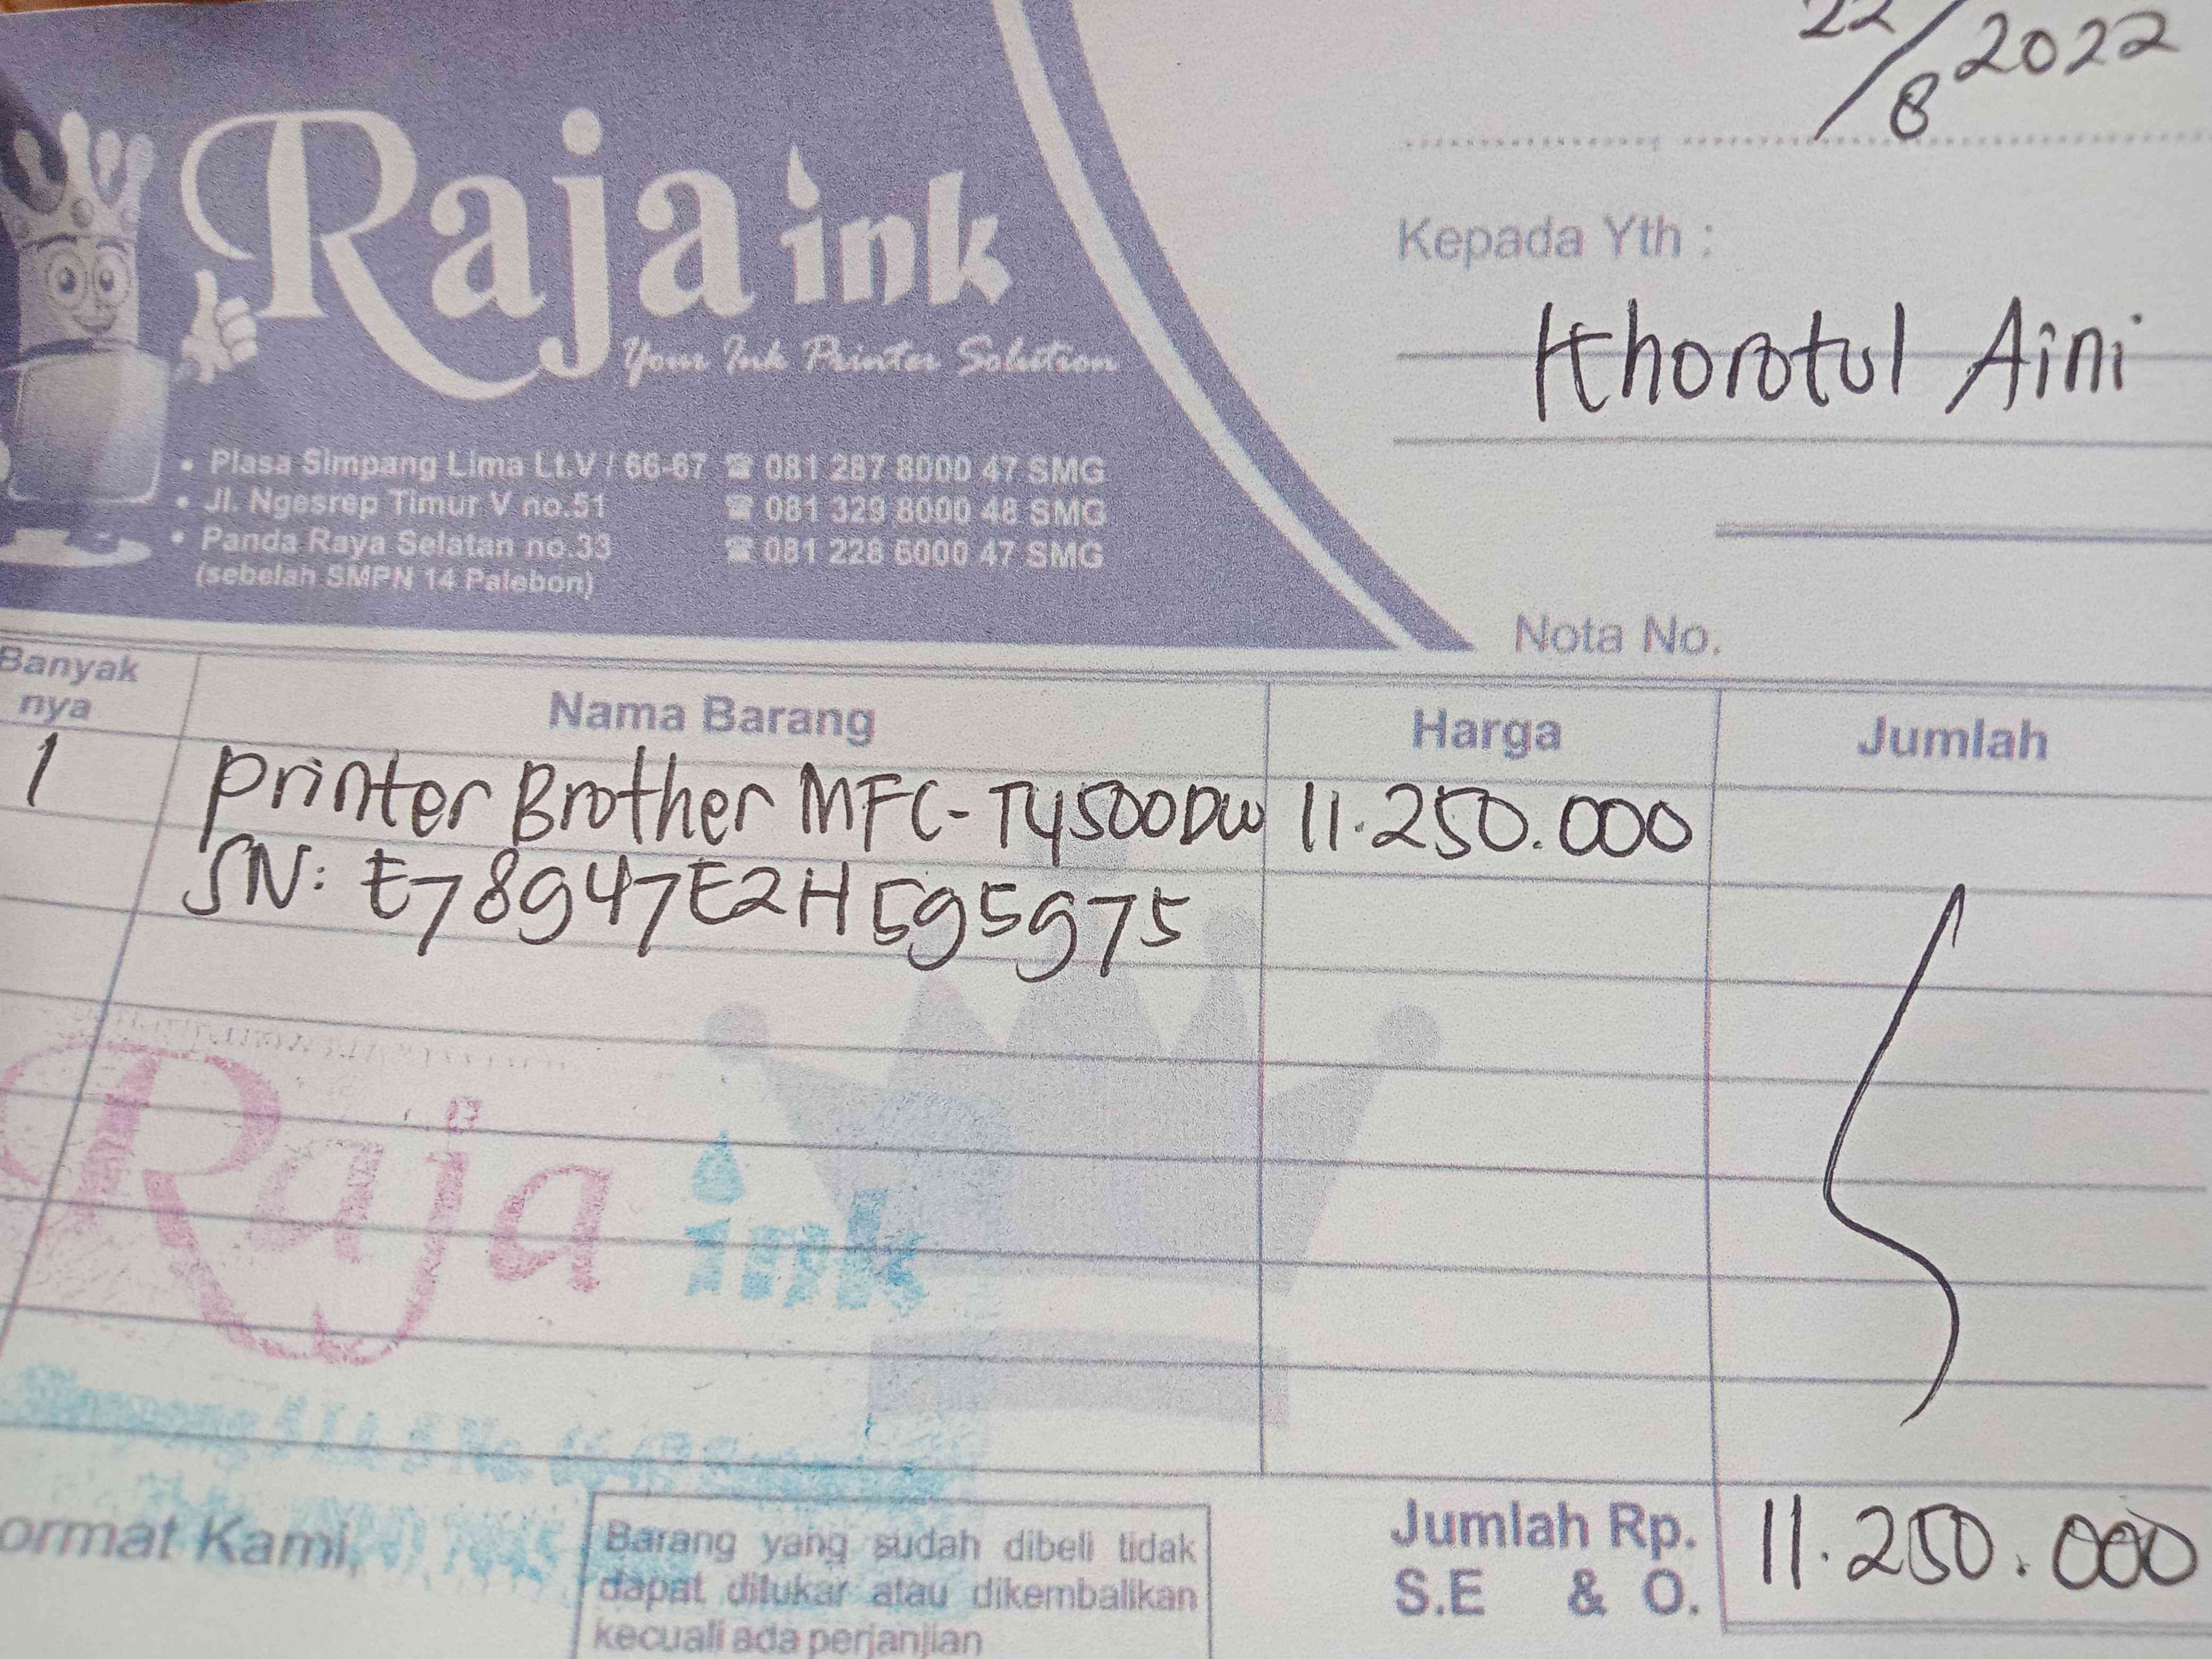 22/8 2022
Raja ink
Your Ink Printer Solution
• Plasa Simpang Lima Lt.V / 66-67 ☎ 081 287 8000 47 SMG
• Jl. Ngesrep Timur V no.51 ☎ 081 329 8000 48 SMG
• Panda Raya Selatan no.33 ☎ 081 228 6000 47 SMG
(sebelah SMPN 14 Palebon)
Kepada Yth :
Khorotul Aini
Nota No.
Banyak
nya
Nama Barang
Harga
Jumlah
1 Printer Brother MFC-T4500DW 11.250.000
SN: E78947E2H595975
Raja ink
ormat Kami,
Barang yang sudah dibeli tidak
dapat ditukar atau dikembalikan
kecuali ada perjanjian
Jumlah Rp. 11.250.000
S.E & O.